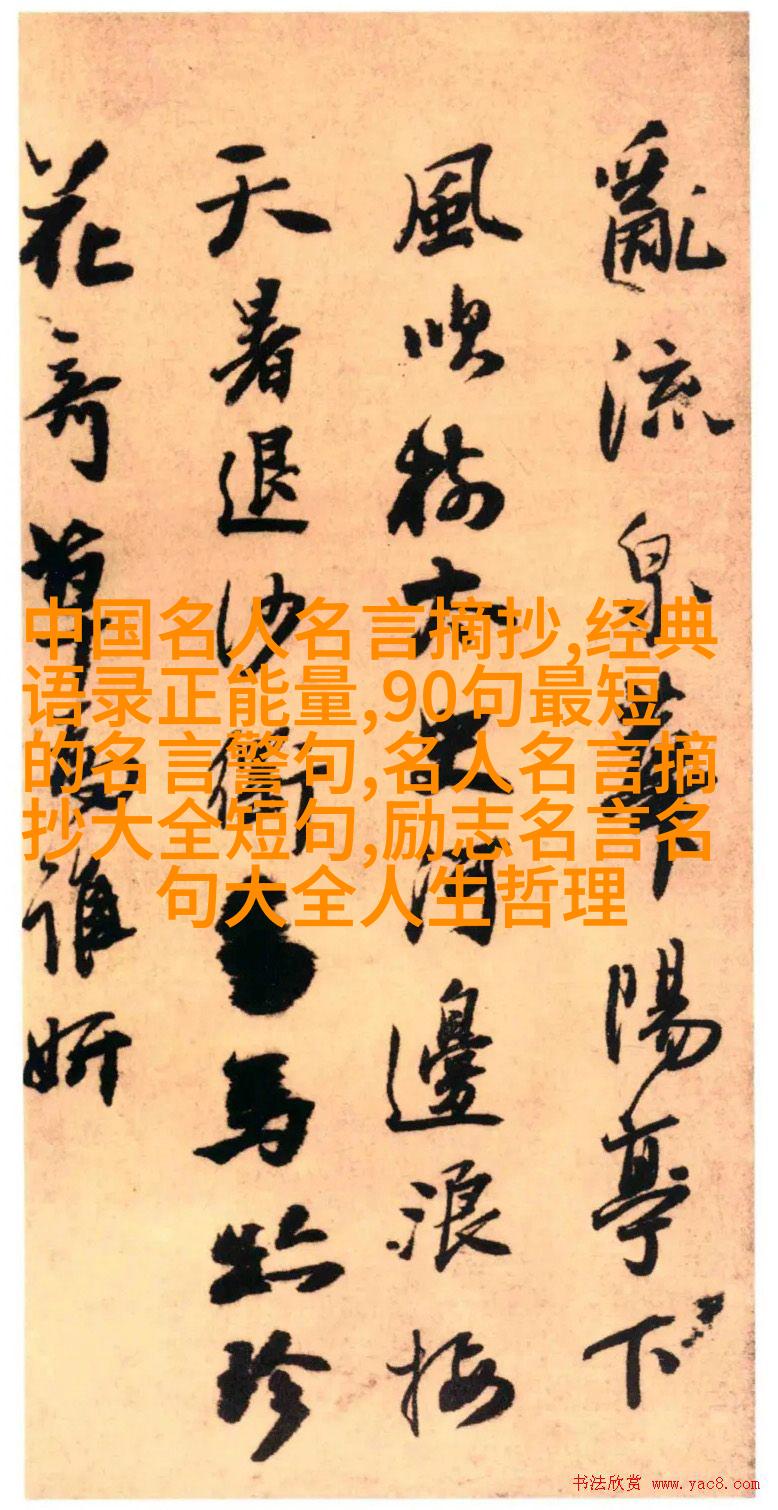 亂流泉華陽亭下
風吹邊浪接
天暑退沙衝馬跡珍
花奇草誰妍
中国名人名言摘抄,经典
语录正能量,90句最短
的名言警句,名人名言摘
抄大全短句,励志名言名
句大全人生哲理
书法欣赏 www.yac8.com